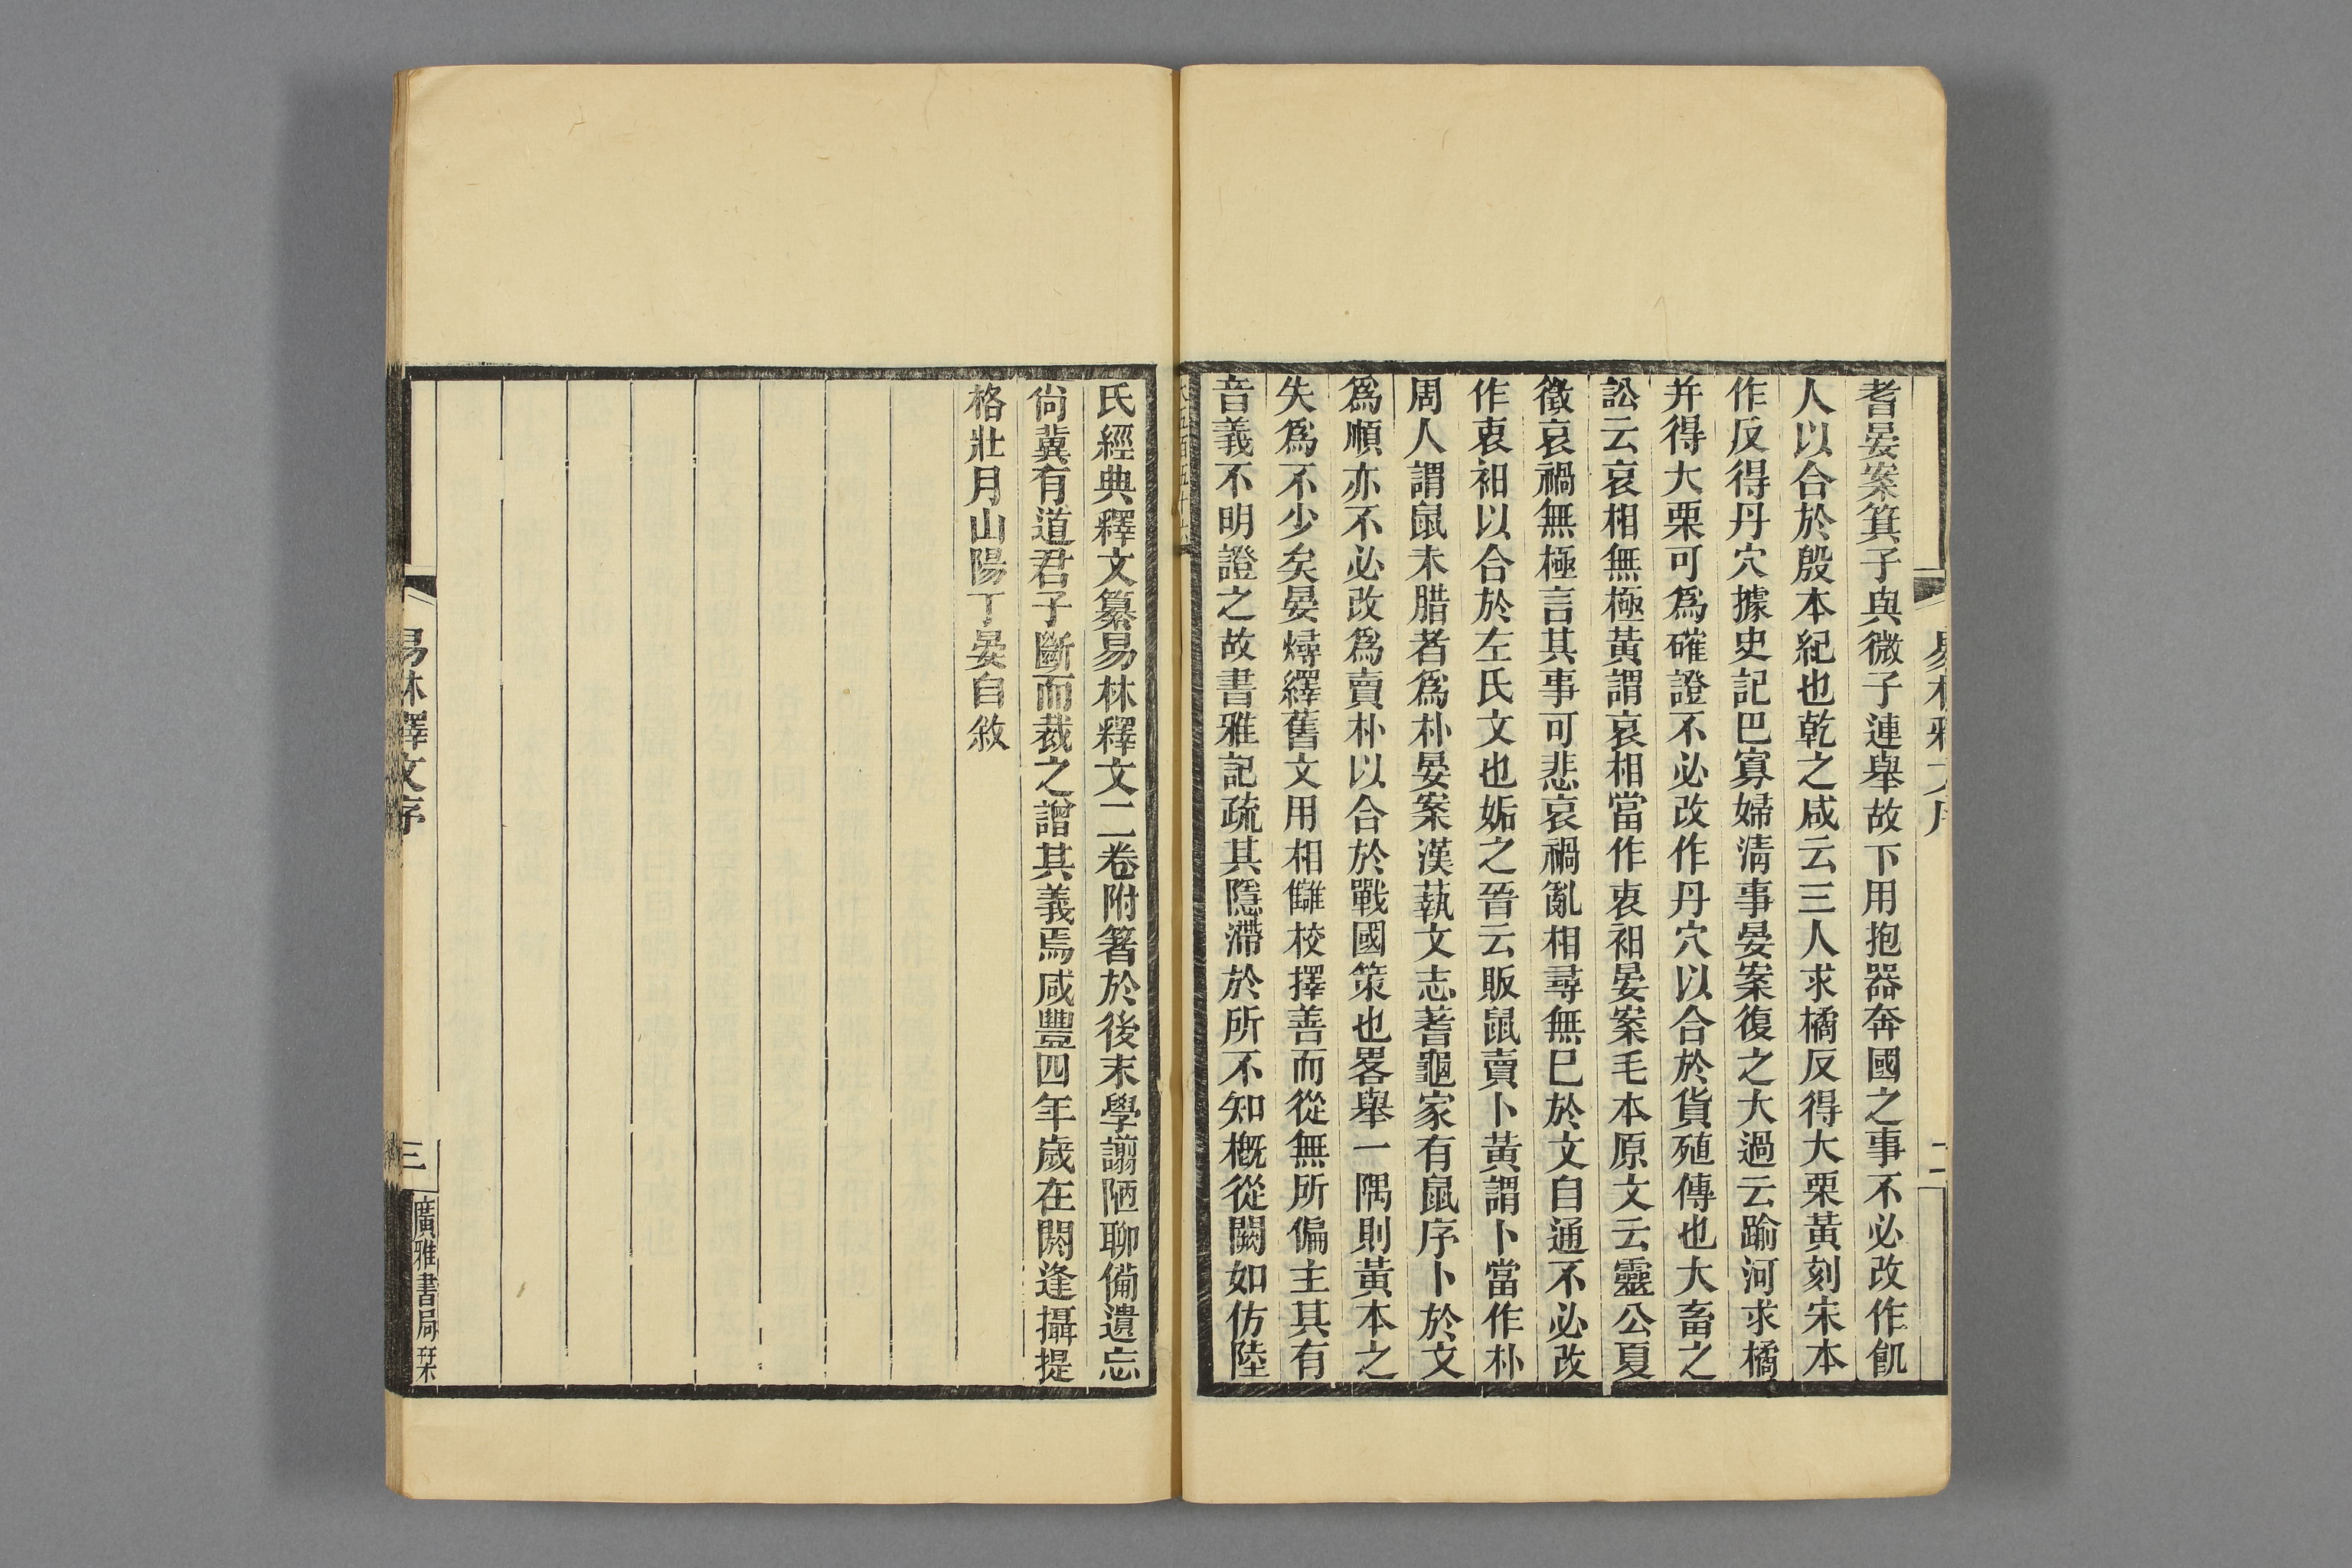 耆晏案箕子與微子連舉故下用抱器奔國之事不必改作飢
人以合於殷本紀也乾之咸云三人求橘反得大栗黃刻宋本
作反得丹穴據史記巴寡婦清事晏案復之大過云踰河求橘
并得大栗可爲確證不必改作丹穴以合於貨殖傳也大畜之
訟云哀相無極黃謂哀相當作衷衵晏案毛本原文云靈公夏
徵哀禍無極言其事可悲哀禍亂相尋無已於文自通不必改
作衷衵以合於左氏文也姤之晉云販鼠賣卜黃謂卜當作朴
周人謂鼠未腊者爲朴晏案漢執文志蓍龜家有鼠序卜於文
爲順亦不必改爲賣朴以合於戰國策也畧舉一隅則黃本之
失爲不少矣晏燖繹舊文用相讎校擇善而從無所偏主其有
音義不明證之故書雅記疏其隱滯於所不知槪從闕如仿陸
氏經典釋文纂易林釋文二卷附簮於後末學謭陋聊備遺忘
尙冀有道君子斷而裁之譄其義焉咸豐四年歲在閼逢攝提
格壯月山陽丁晏自敘
易林釋文序
三
廣雅書局栞